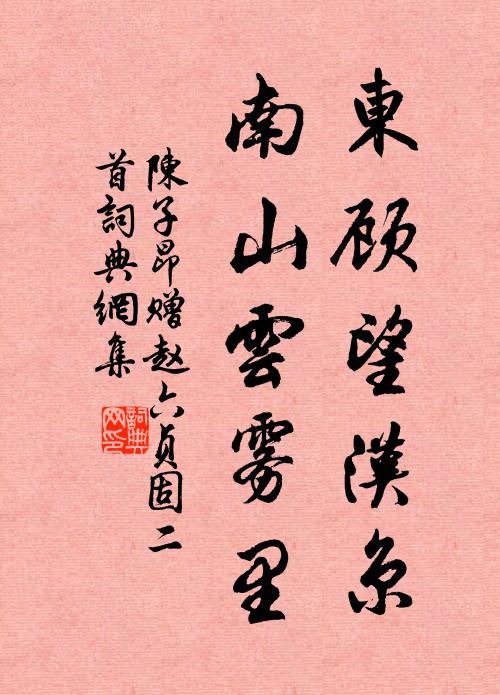 東顾望漢京
南山雲雾里
陳子昂赠赵六贞固二
首詞典網集
詞典
网印